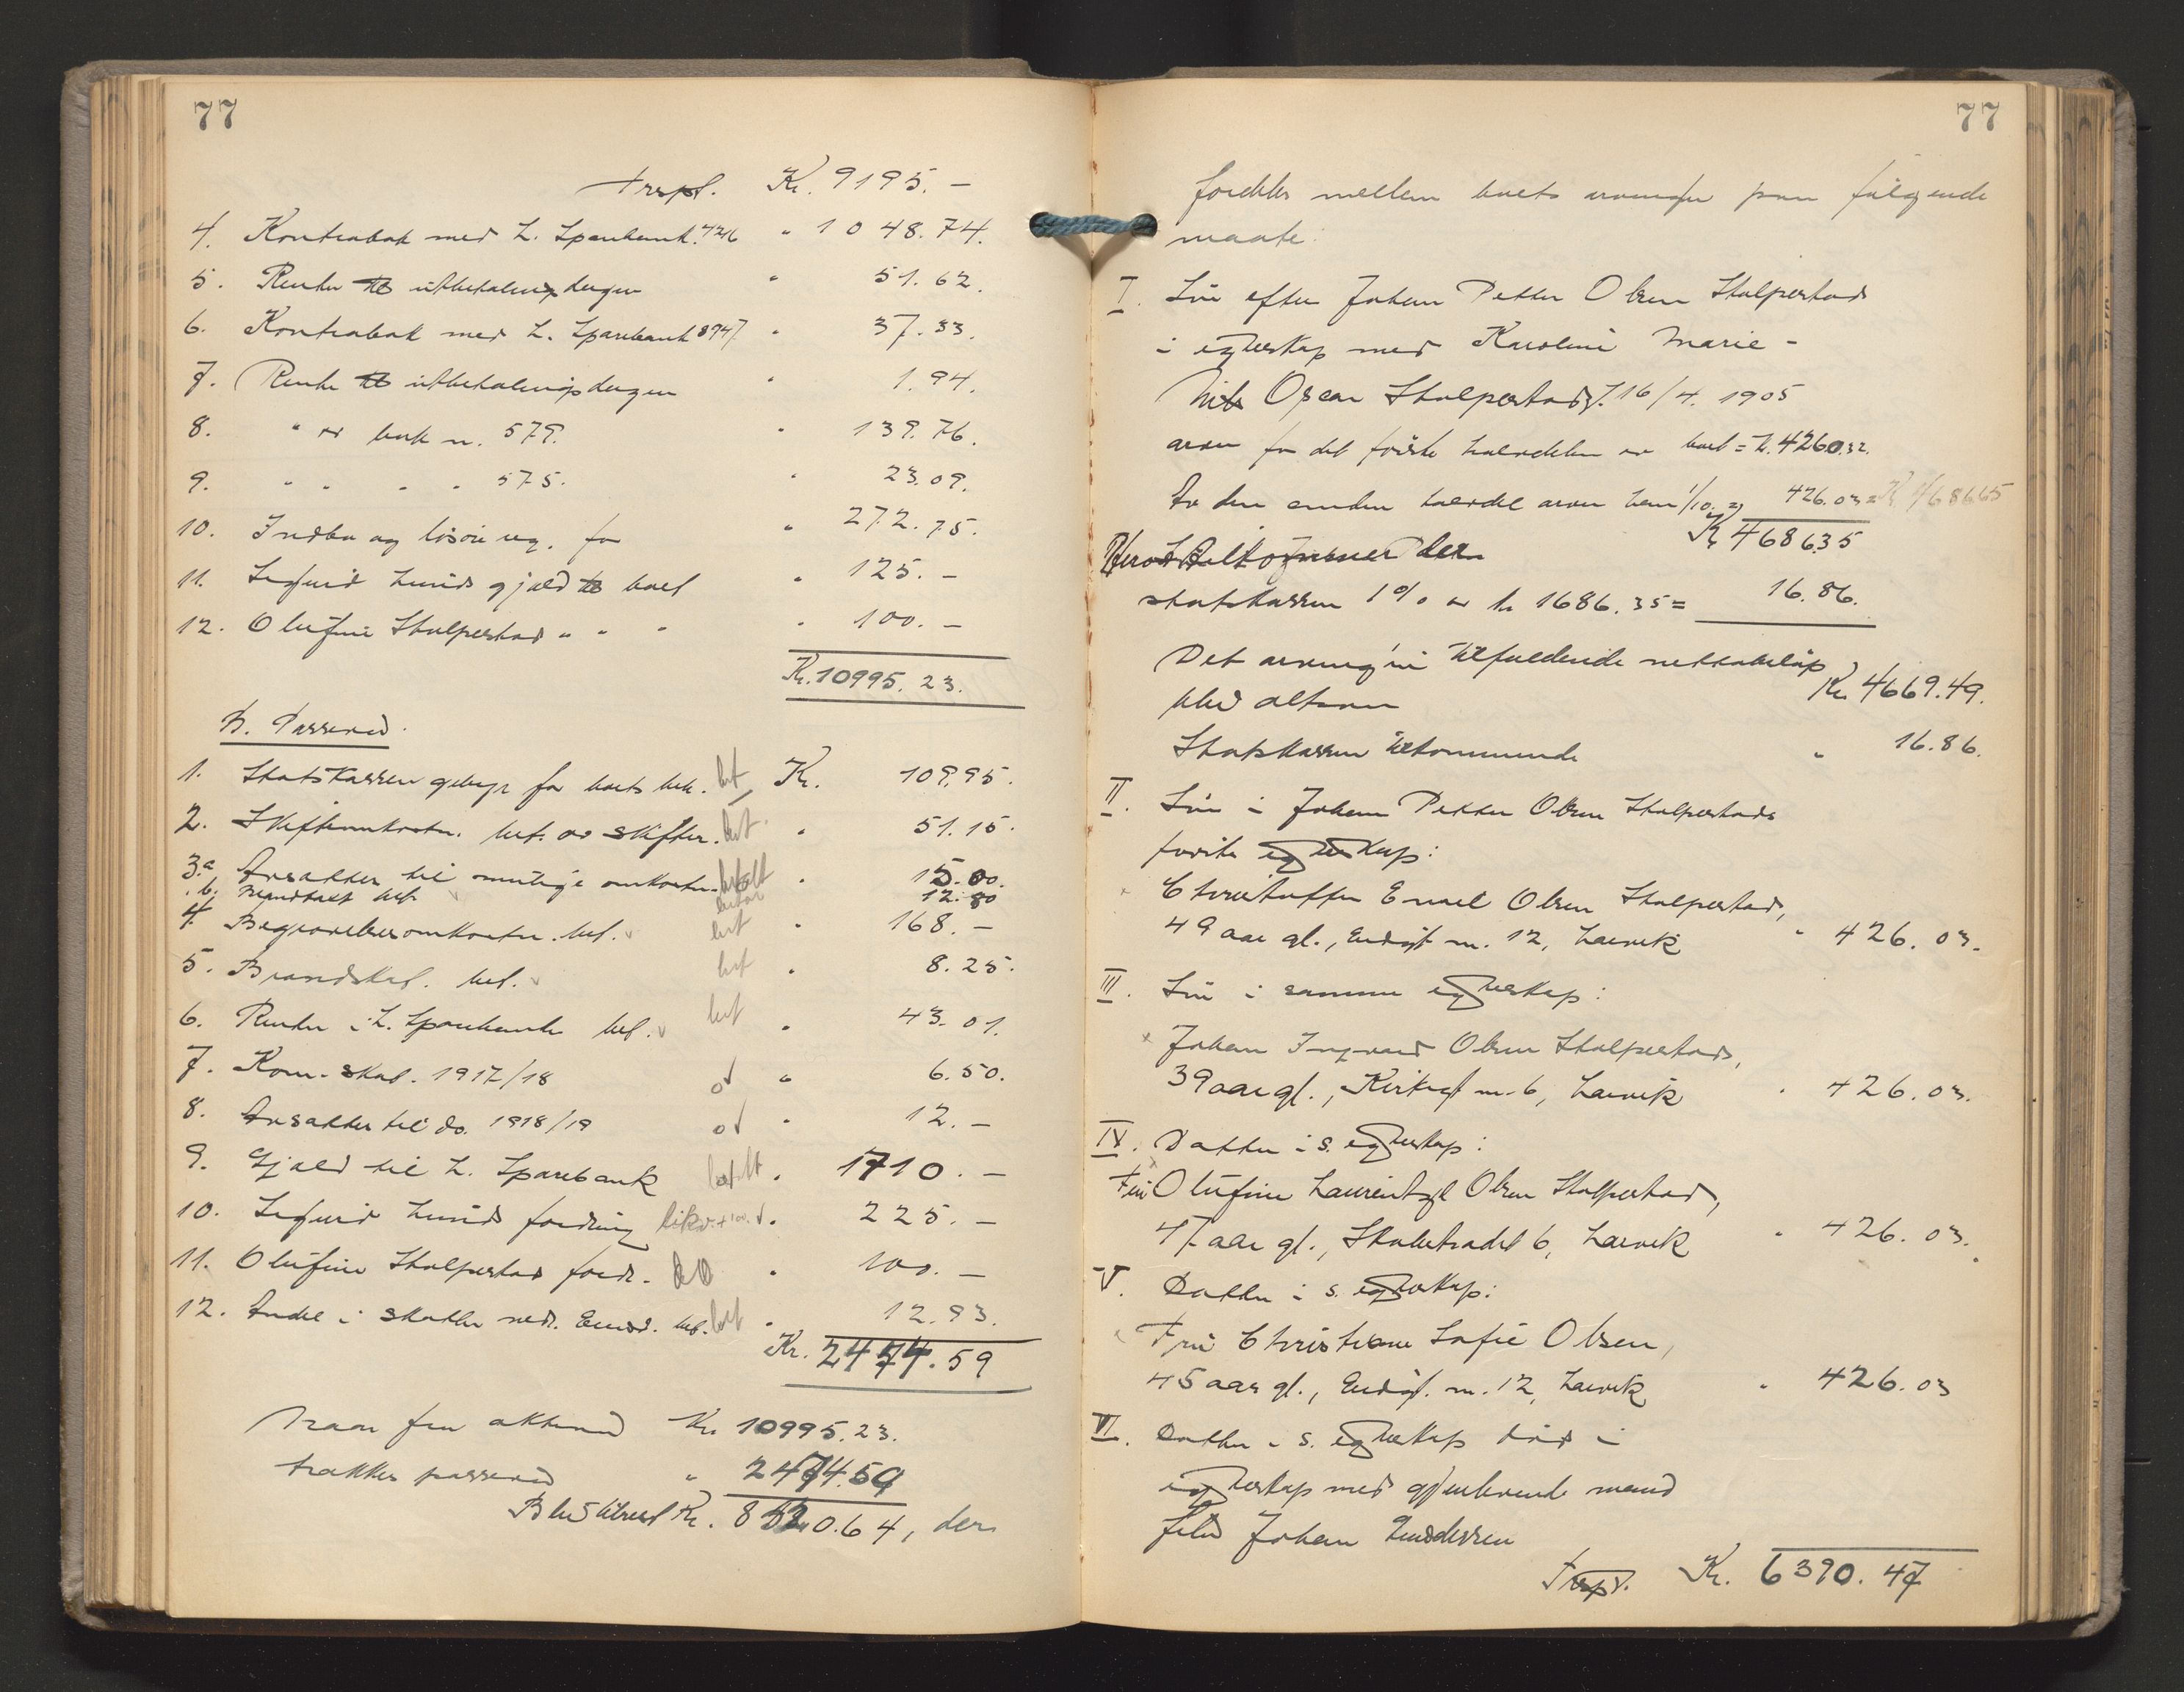 77
Trspt. Kr. 9195. -
4. Kontrabok med L. Sparebank. 7246 " 1048.74.
5. Renter til utbetalingsdagen " 51.62.
6. Kontrabok med L. Sparebank 8947 " 37.33.
7. Rente til utbetalingsdagen " 1.94.
8. " av bok n. 579. " 139.76.
9. " " " " 575. " 23.09.
10. Indbo og løsøre for " 272.75.
11. Sigurd Lunds gjæld til boet " 125. -
12. Olufine Skalperstad " " " " 100. -
Kr. 10995.23.
B. Passiva.
1. Statskassen gebyr for boets beh. bet Kr. 109.95.
2. Skifteomkostn. bet. av skifter. bet " 51.15.
3.a Avsættes til mulige omkostn. " 15.00.
b. bet. 12.80
4. Begravelsesomkostn. bet. bet " 168. -
5. Brandskat. bet. bet " 8.25.
6. Renter i L. Sparebank bet. bet " 43.01.
7. Kom. skat. 1917/18 " 6.50.
8. Avsættes til do. 1918/19 " 12. -
9. Gjæld til L. Sparebank betalt " 1710. -
10. Sigurd Lunds fordring " 225. -
11. Olufine Skalperstad fordr. " 100. -
12. Andel i skatter bet. bet " 12.93.
Kr. 2474.59
Naar fra aktiva Kr. 10995.23.
trækkes passiva " 2474.59
Blir tilrest Kr. 8520.64, der
77
fordeles mellem boets arvinger paa følgende
maate:
I. Søn efter Johan Petter Olsen Skalperstad
i egteskap med Karoline Marie -
Nils Oscar Skalperstad, f. 16/4. 1905
arver for det første halvdelen av boet = Kr. 4260.32.
Av den anden halvdel arver han 1/10 = 426.03 = Kr. 4686.35
Kr 4686.35
Herav tilkommer der
statskassen 1 % av kr 1686.35 = 16.86.
Det arvingen tilfaldende nettobeløp
blir altsaa Kr. 4669.49.
Statskassen tilkommende " 16.86.
II. Søn i Johan Petter Olsen Skalperstads
første egteskap:
Christoffer Emil Olsen Skalperstad,
49 aar gl., n. 12, Larvik " 426.03.
III. Søn i samme egteskap:
Johan Ingvard Olsen Skalperstad,
39 aar gl., Kirkegt n. 6, Larvik " 426.03.
IV. Datter i s. egteskap:
Frk Olufine Laurentze Olsen Skalperstad,
47 aar gl., 6, Larvik " 426.03.
V. Datter i s. egteskap:
Fru Christiane Sofie Olsen,
45 aar gl., n. 12, Larvik " 426.03
VI. Datter i s. egteskap død i
egteskap med gjenlevende mand
Johan
Trspt. Kr. 6390.47